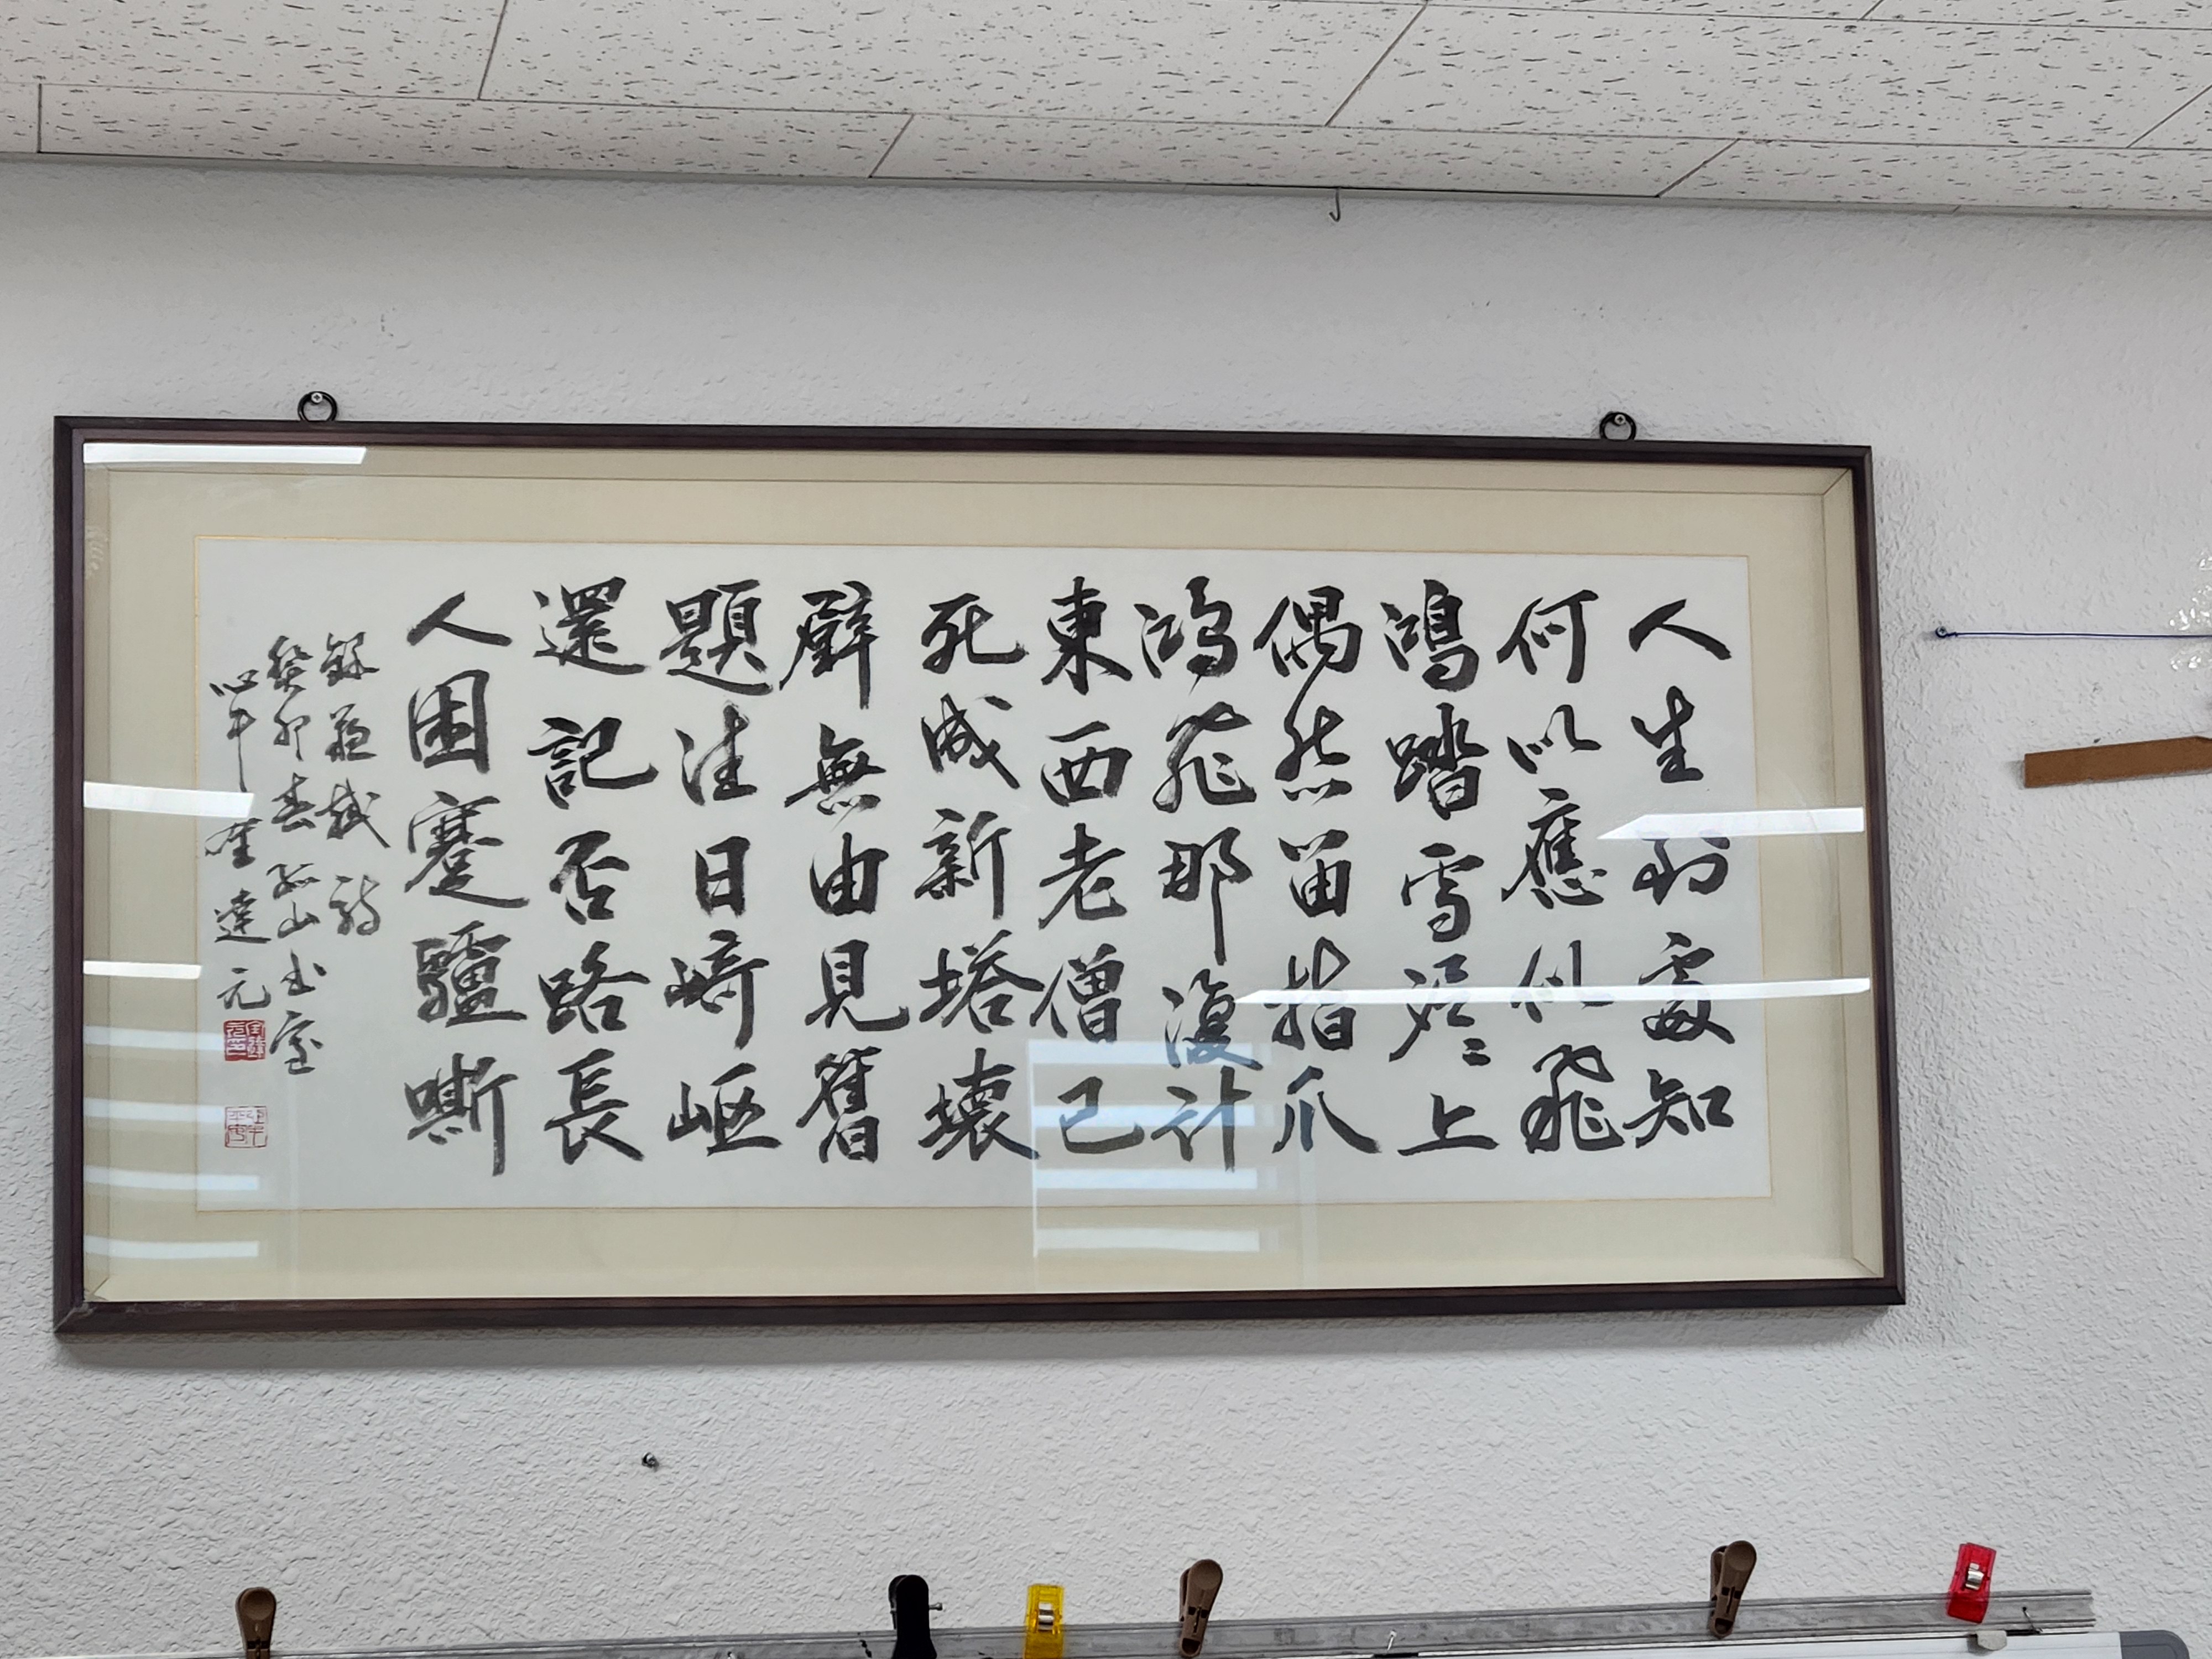 人生到處知
何以應似飛
鴻踏雪泥〻上
偶然留指爪
鴻飛那復計
東西老僧已
死成新塔壞
壁無由見舊
題往日崎嶇
還記否路長
人困蹇驢嘶
錄蘇軾詩
癸卯春山書室
心平崔達元